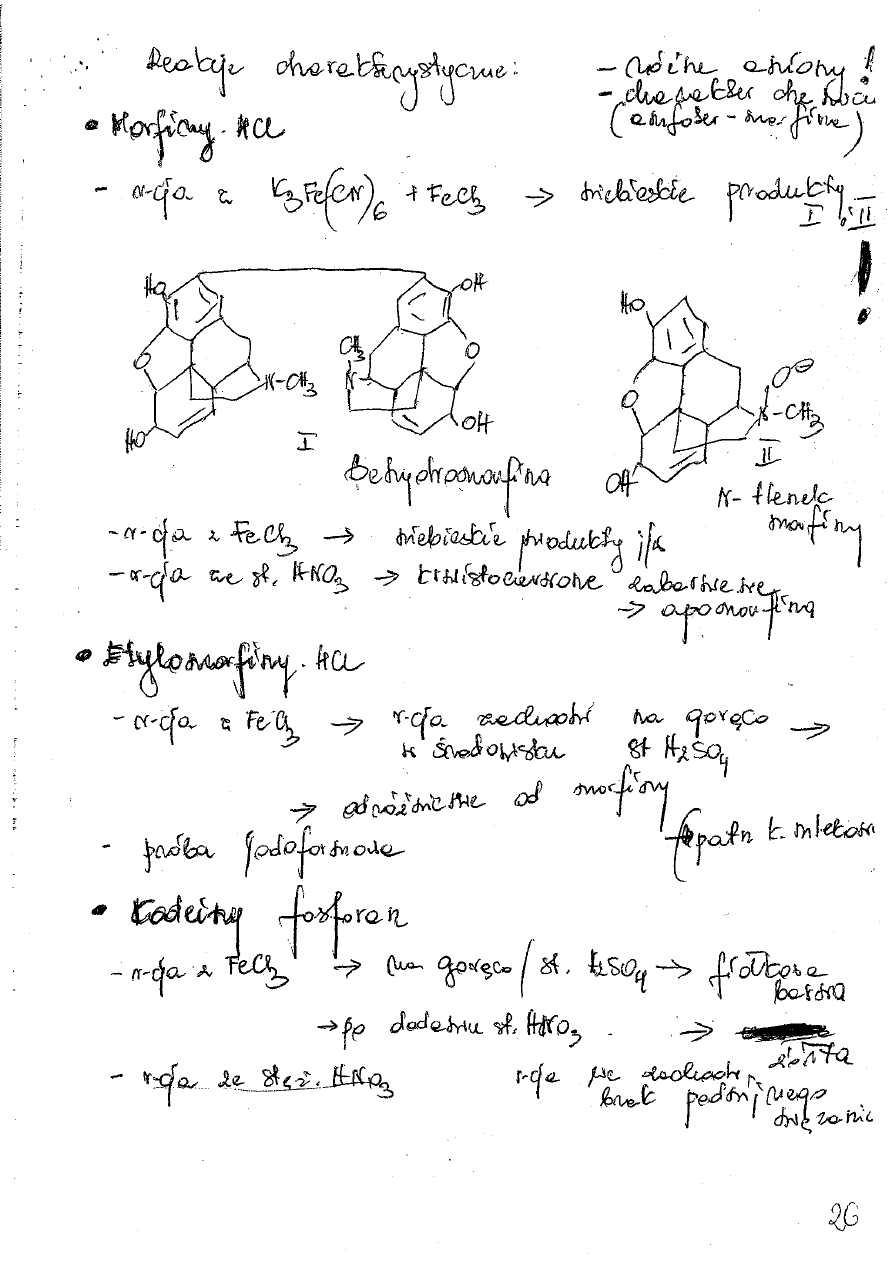 Reakcje charakterystyczne:
- różne aniony!
- charakter chemiczny
(amfoter - morfina)
• Morfiny · HCl
- r-cja z K3Fe(CN)6 + FeCl3 → niebieskie produkty
I i II !
HO
OH
CH3
HO
O
O
N-CH3
N
O
O⊖
N-CH3
HO
OH
OH
I
II
Dehydromorfina
N-tlenek
morfiny
- r-cja z FeCl3 → niebieskie produkty j/w
- r-cja ze st. HNO3 → krwistoczerwone zabarwienie
→ apomorfina
• Etylomorfiny · HCl
- r-cja z FeCl3 → r-cja zachodzi na gorąco →
w środowisku st H2SO4
→ odróżnienie od morfiny
- próba jodoformowa
• Kodeiny fosforan
- r-cja z FeCl3 → na gorąco / st. H2SO4 → fioletowa
barwa
→ po dodaniu st. HNO3 →
żółta
- r-cja ze stęż. HNO3 r-cja nie zachodzi,
brak podwójnego
wiązania
26